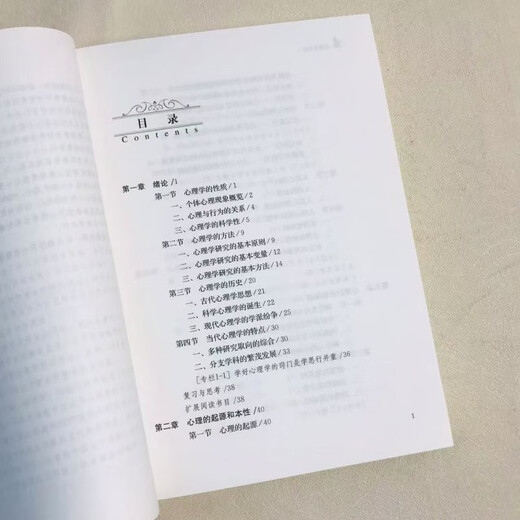 目 录
Contents
第一章 绪论/1
第一节 心理学的性质/1
一、个体心理现象概览/2
二、心理与行为的关系/4
三、心理学的科学性/5
第二节 心理学的方法/9
一、心理学研究的基本原则/9
二、心理学研究的基本变量/12
三、心理学研究的基本方法/14
第三节 心理学的历史/20
一、古代心理学思想/21
二、科学心理学的诞生/22
三、现代心理学的学派纷争/25
第四节 当代心理学的特点/30
一、多种研究取向的综合/30
二、分支学科的繁茂发展/33
[专栏1-1] 学好心理学的窍门是学思行并重/36
复习与思考/38
扩展阅读书目/38
第二章 心理的起源和本性/40
第一节 心理的起源/40
1